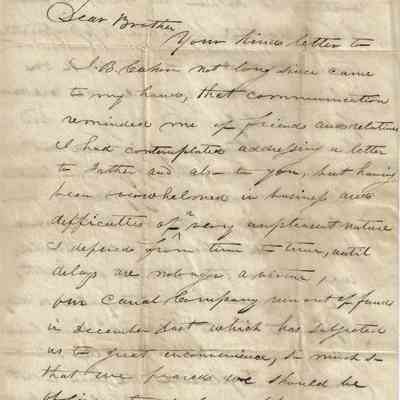 Dear Brother
Your kind letter to
J. B. not long since came
to my hand, that communication
reminded me of friends and relatives
I had contemplated addressing a letter
to Father and also to you, but having
been overwhelmed in business and
difficulties of a very unpleasant nature
I defered from time to time, until
delays are no longer a virtue,
our Canal Company run out of funds
in december last which has subjected
us to great inconvenience, so much so
that we feared we should be